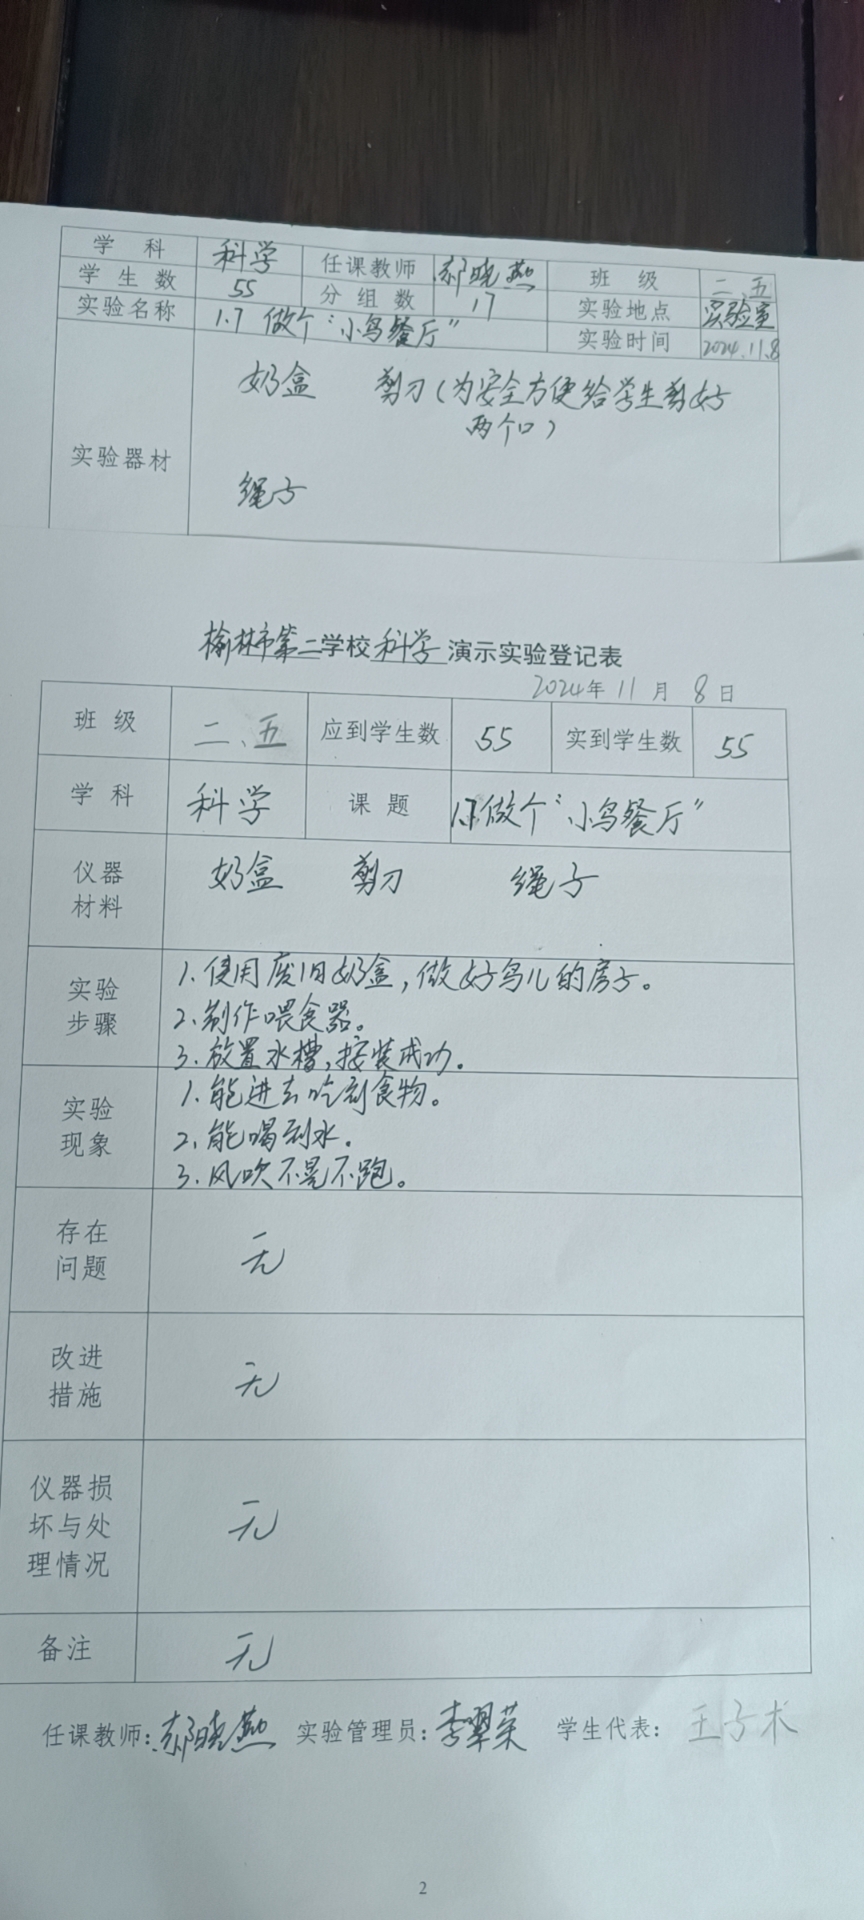 学 科 科学 任课教师 郝晓燕 班 级 二、五
学 生 数 55 分 组 数 17 实验地点 实验室
实验名称 1.7 做个“小鸟餐厅” 实验时间 2024.11.8
实验器材
奶盒 剪刀(为安全方便给学生剪好
两个口)
绳子
榆林市第二学校科学演示实验登记表
2024年 11 月 8 日
班 级 二、五 应到学生数 55 实到学生数 55
学 科 科学 课 题 1.7做个“小鸟餐厅”
仪器
材料
奶盒 剪刀 绳子
实验
步骤
1.使用废旧奶盒,做好鸟儿的房子。
2.制作喂食器。
3.放置水槽,接装成功.
实验
现象
1.能进去吃到食物。
2.能喝到水.
3.风吹不晃不跑。
存在
问题
无
改进
措施
无
仪器损
坏与处
理情况
无
备注
无
任课教师:郝晓燕 实验管理员:李翠荣 学生代表:王子术
2